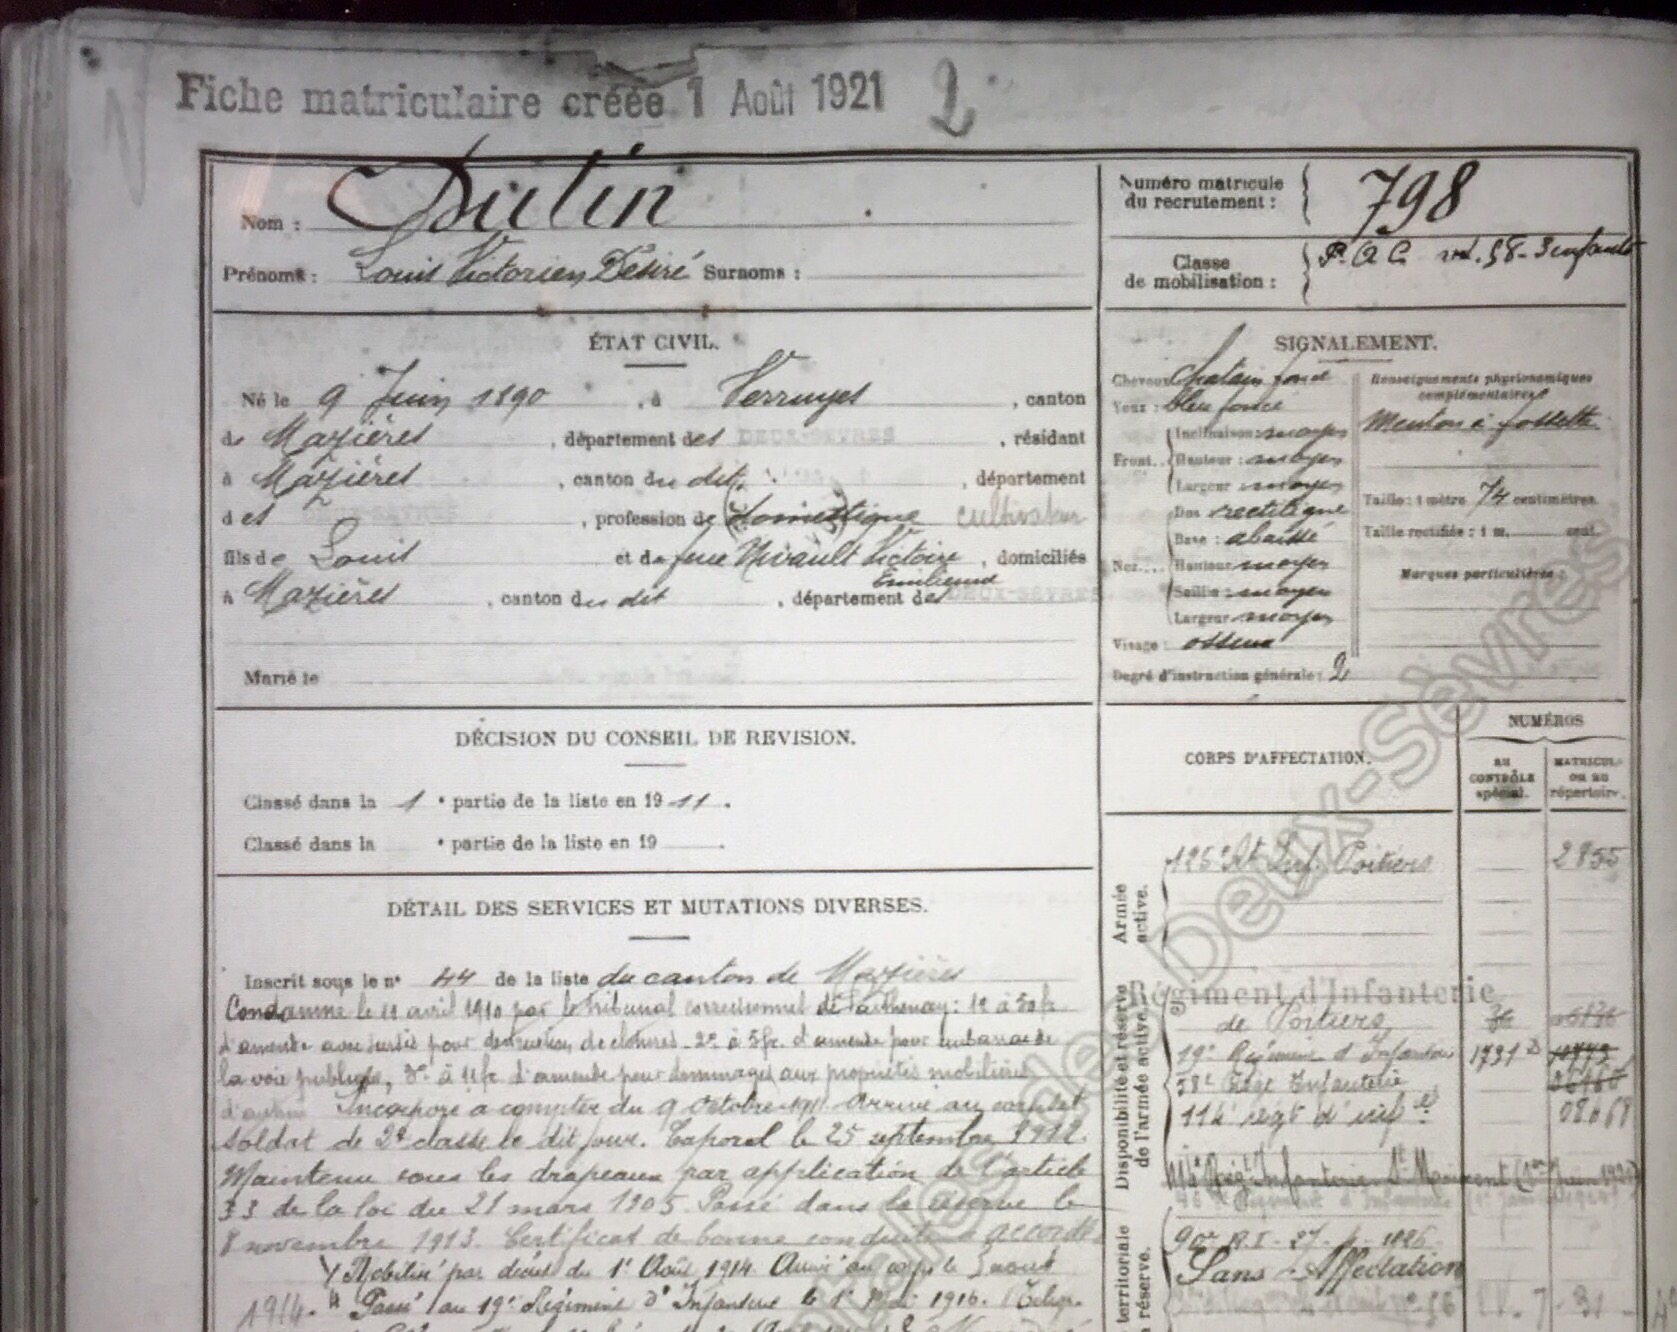 Fiche matriculaire créée 1 Août 1921 2
Nom : Dutin
Prénoms : Louis Victorien Désiré Surnoms :
Numéro matricule du recrutement : 798
Classe de mobilisation : P. A. C. 58 - 3 enfants
ÉTAT CIVIL.
Né le 9 Juin 1890, à Verruyes, canton
de Mazières, département des DEUX-SÈVRES, résidant
à Mazières, canton du dit, département
des DEUX-SÈVRES, profession de (domestique) cultivateur
fils de Louis et de feue Nivault Victoire, domiciliés
Emilienne
à Mazières, canton du dit, département des DEUX-SÈVRES
Marié le
SIGNALEMENT.
Cheveux châtain foncé
Yeux : bleu foncé
Front Inclinaison : moyen
Hauteur : moyen
Largeur : moyen
Nez Dos rectiligne
Base : abaissé
Hauteur moyen
Saillie : moyen
Largeur moyen
Visage : osseux
Degré d'instruction générale : 2
Renseignements physionomiques complémentaires
Menton à fossette
Taille : 1 mètre 74 centimètres.
Taille rectifiée : 1 m. cent.
Marques particulières :
DÉCISION DU CONSEIL DE REVISION.
Classé dans la 1e partie de la liste en 1911.
Classé dans la e partie de la liste en 19 .
DÉTAIL DES SERVICES ET MUTATIONS DIVERSES.
Inscrit sous le n° 44 de la liste du canton de Mazières
Condamné le 11 avril 1910 par le tribunal correctionnel de Parthenay : 1° à 50 fr
d'amende avec sursis pour destruction de clotures - 2° à 5 fr. d'amende pour embarras de
la voie publique, 3° à 11 fr. d'amende pour dommages aux propriétés mobilières
d'autrui Incorporé à compter du 9 octobre 1911 Arrivé au corps et
soldat de 2e classe le dit jour. Caporal le 25 septembre 1912.
Maintenu sous les drapeaux par application de l'article
33 de la loi du 21 mars 1905. Passé dans la réserve le
8 novembre 1913. Certificat de bonne conduite accordé
Mobilisé par décret du 1er Août 1914 Arrivé au corps le 3 aout
1914. Passé au 19e Régiment d'Infanterie le 1er Mai 1916.
CORPS D'AFFECTATION.
NUMÉROS
AU CONTRÔLE spécial.
MATRICULE ou au répertoire.
Armée active.
125e Rt Inf. Poitiers 2855
Disponibilité et réserve de l'armée active.
Régiment d'Infanterie
de Poitiers
19e Régiment d'Infanterie 1731
58e Régt Infanterie
114e régt d'inf
114e Rég. Infanterie St Maixent (1er Juin 1921)
territoriale
réserve.
90e R.I.
Sans Affectation
Archives des Deux-Sèvres